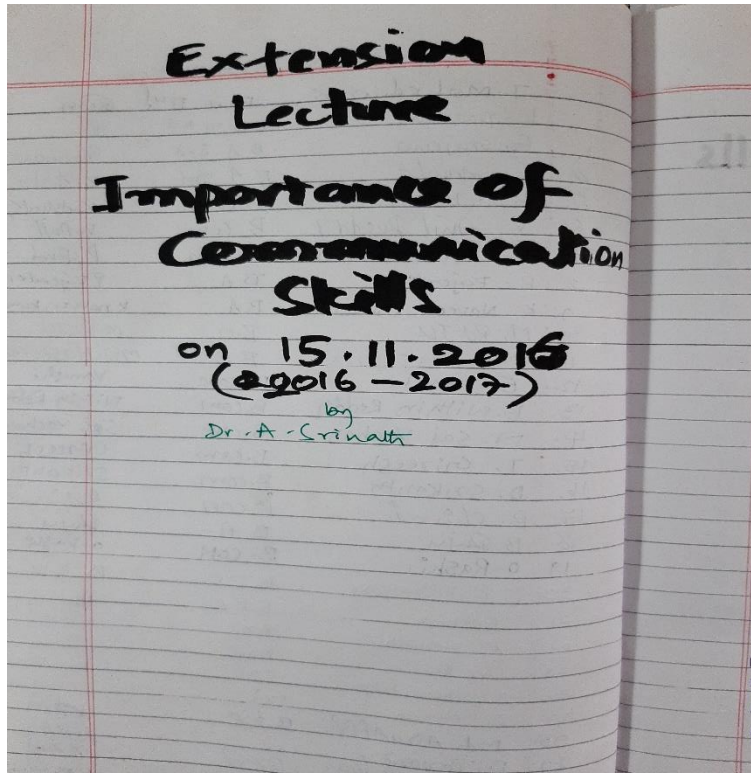 Extension
Lecture
Importance of
Communication
Skills
on 15.11.2016
(2016 - 2017)
by
Dr. A. Srinath